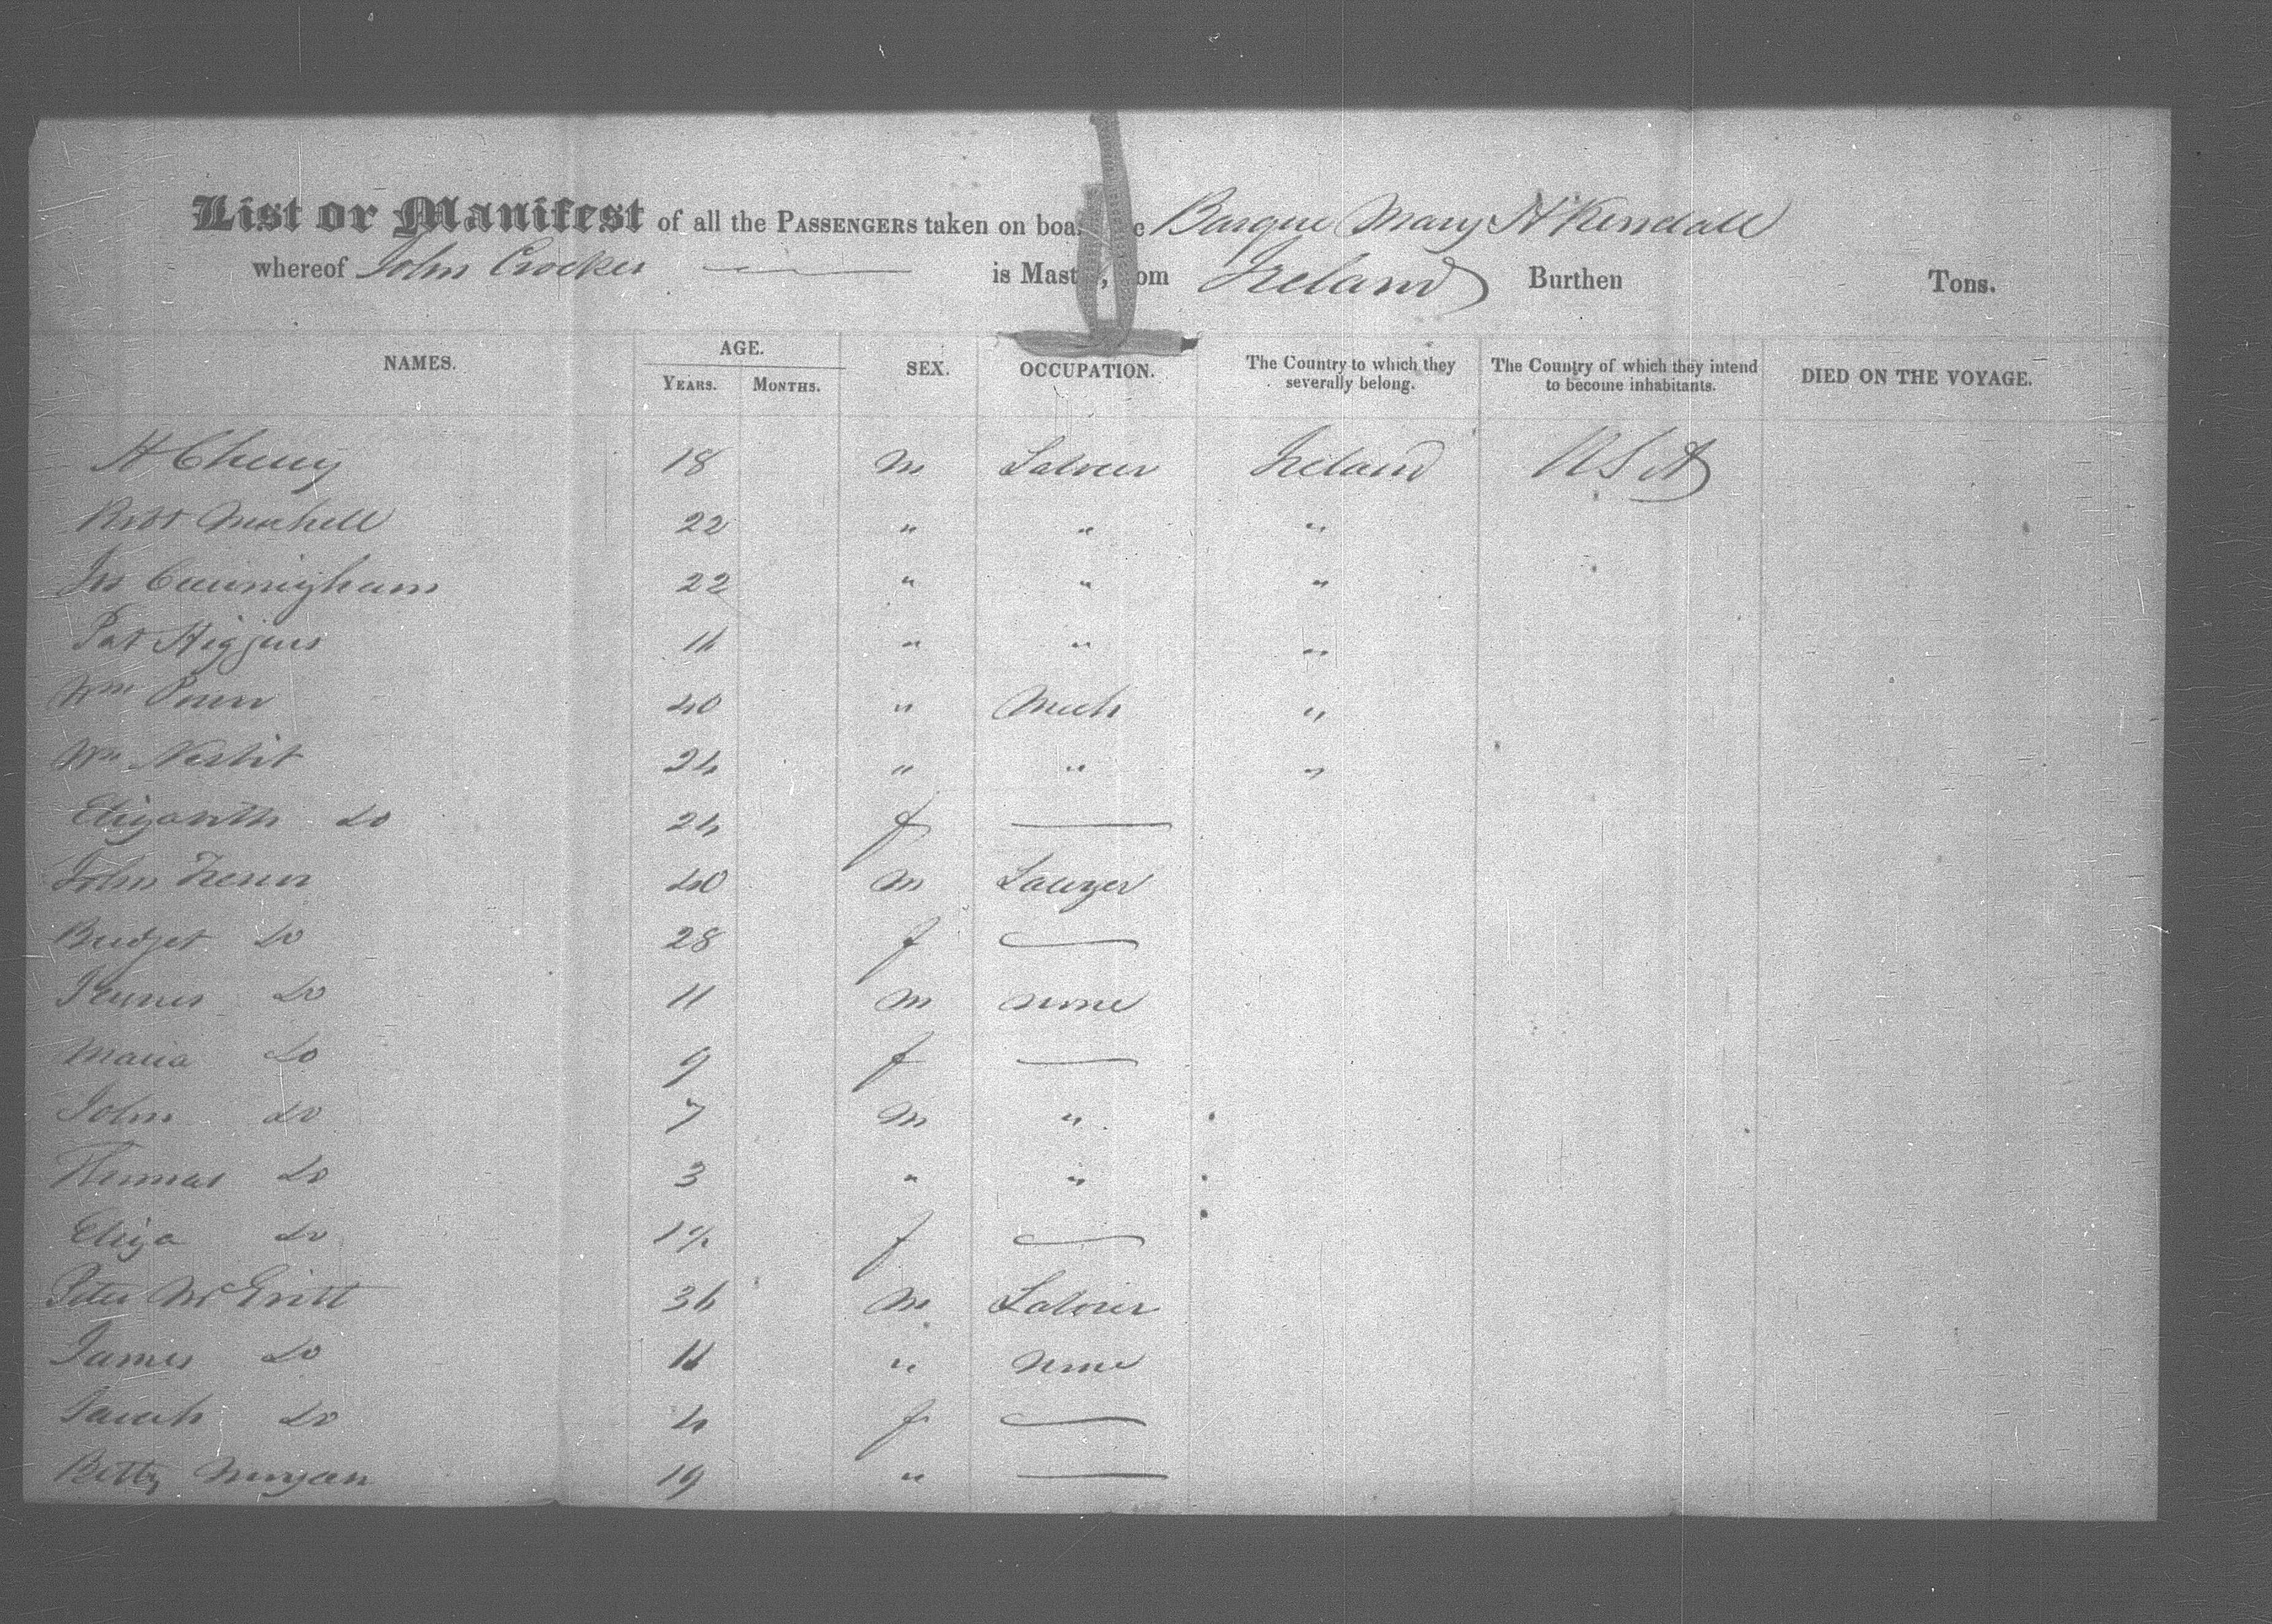 List or Manifest of all the PASSENGERS taken on boa e Barque Mary H Kendall
whereof John Crocker is Mast , om Ireland Burthen Tons.
NAMES. AGE. YEARS. MONTHS. SEX. OCCUPATION. The Country to which they severally belong. The Country of which they intend to become inhabitants. DIED ON THE VOYAGE.
H Cherry 18 M Laborer Ireland U S A
Robt 22 " " "
Cunningham 22 " " "
Pat Higgins " " "
Wm 40 " Mech "
Wm Nesbit 24 " " "
Elizabeth Do 24 f
John 40 M
Bridget Do 28 f
Do 11 M none
Maria Do 9 f
John Do 7 M "
Thomas Do 3 " "
Eliza Do 1½ f
Peter 36 M Laborer
James Do " none
Sarah Do 4 f
Betty Morgan 19 "